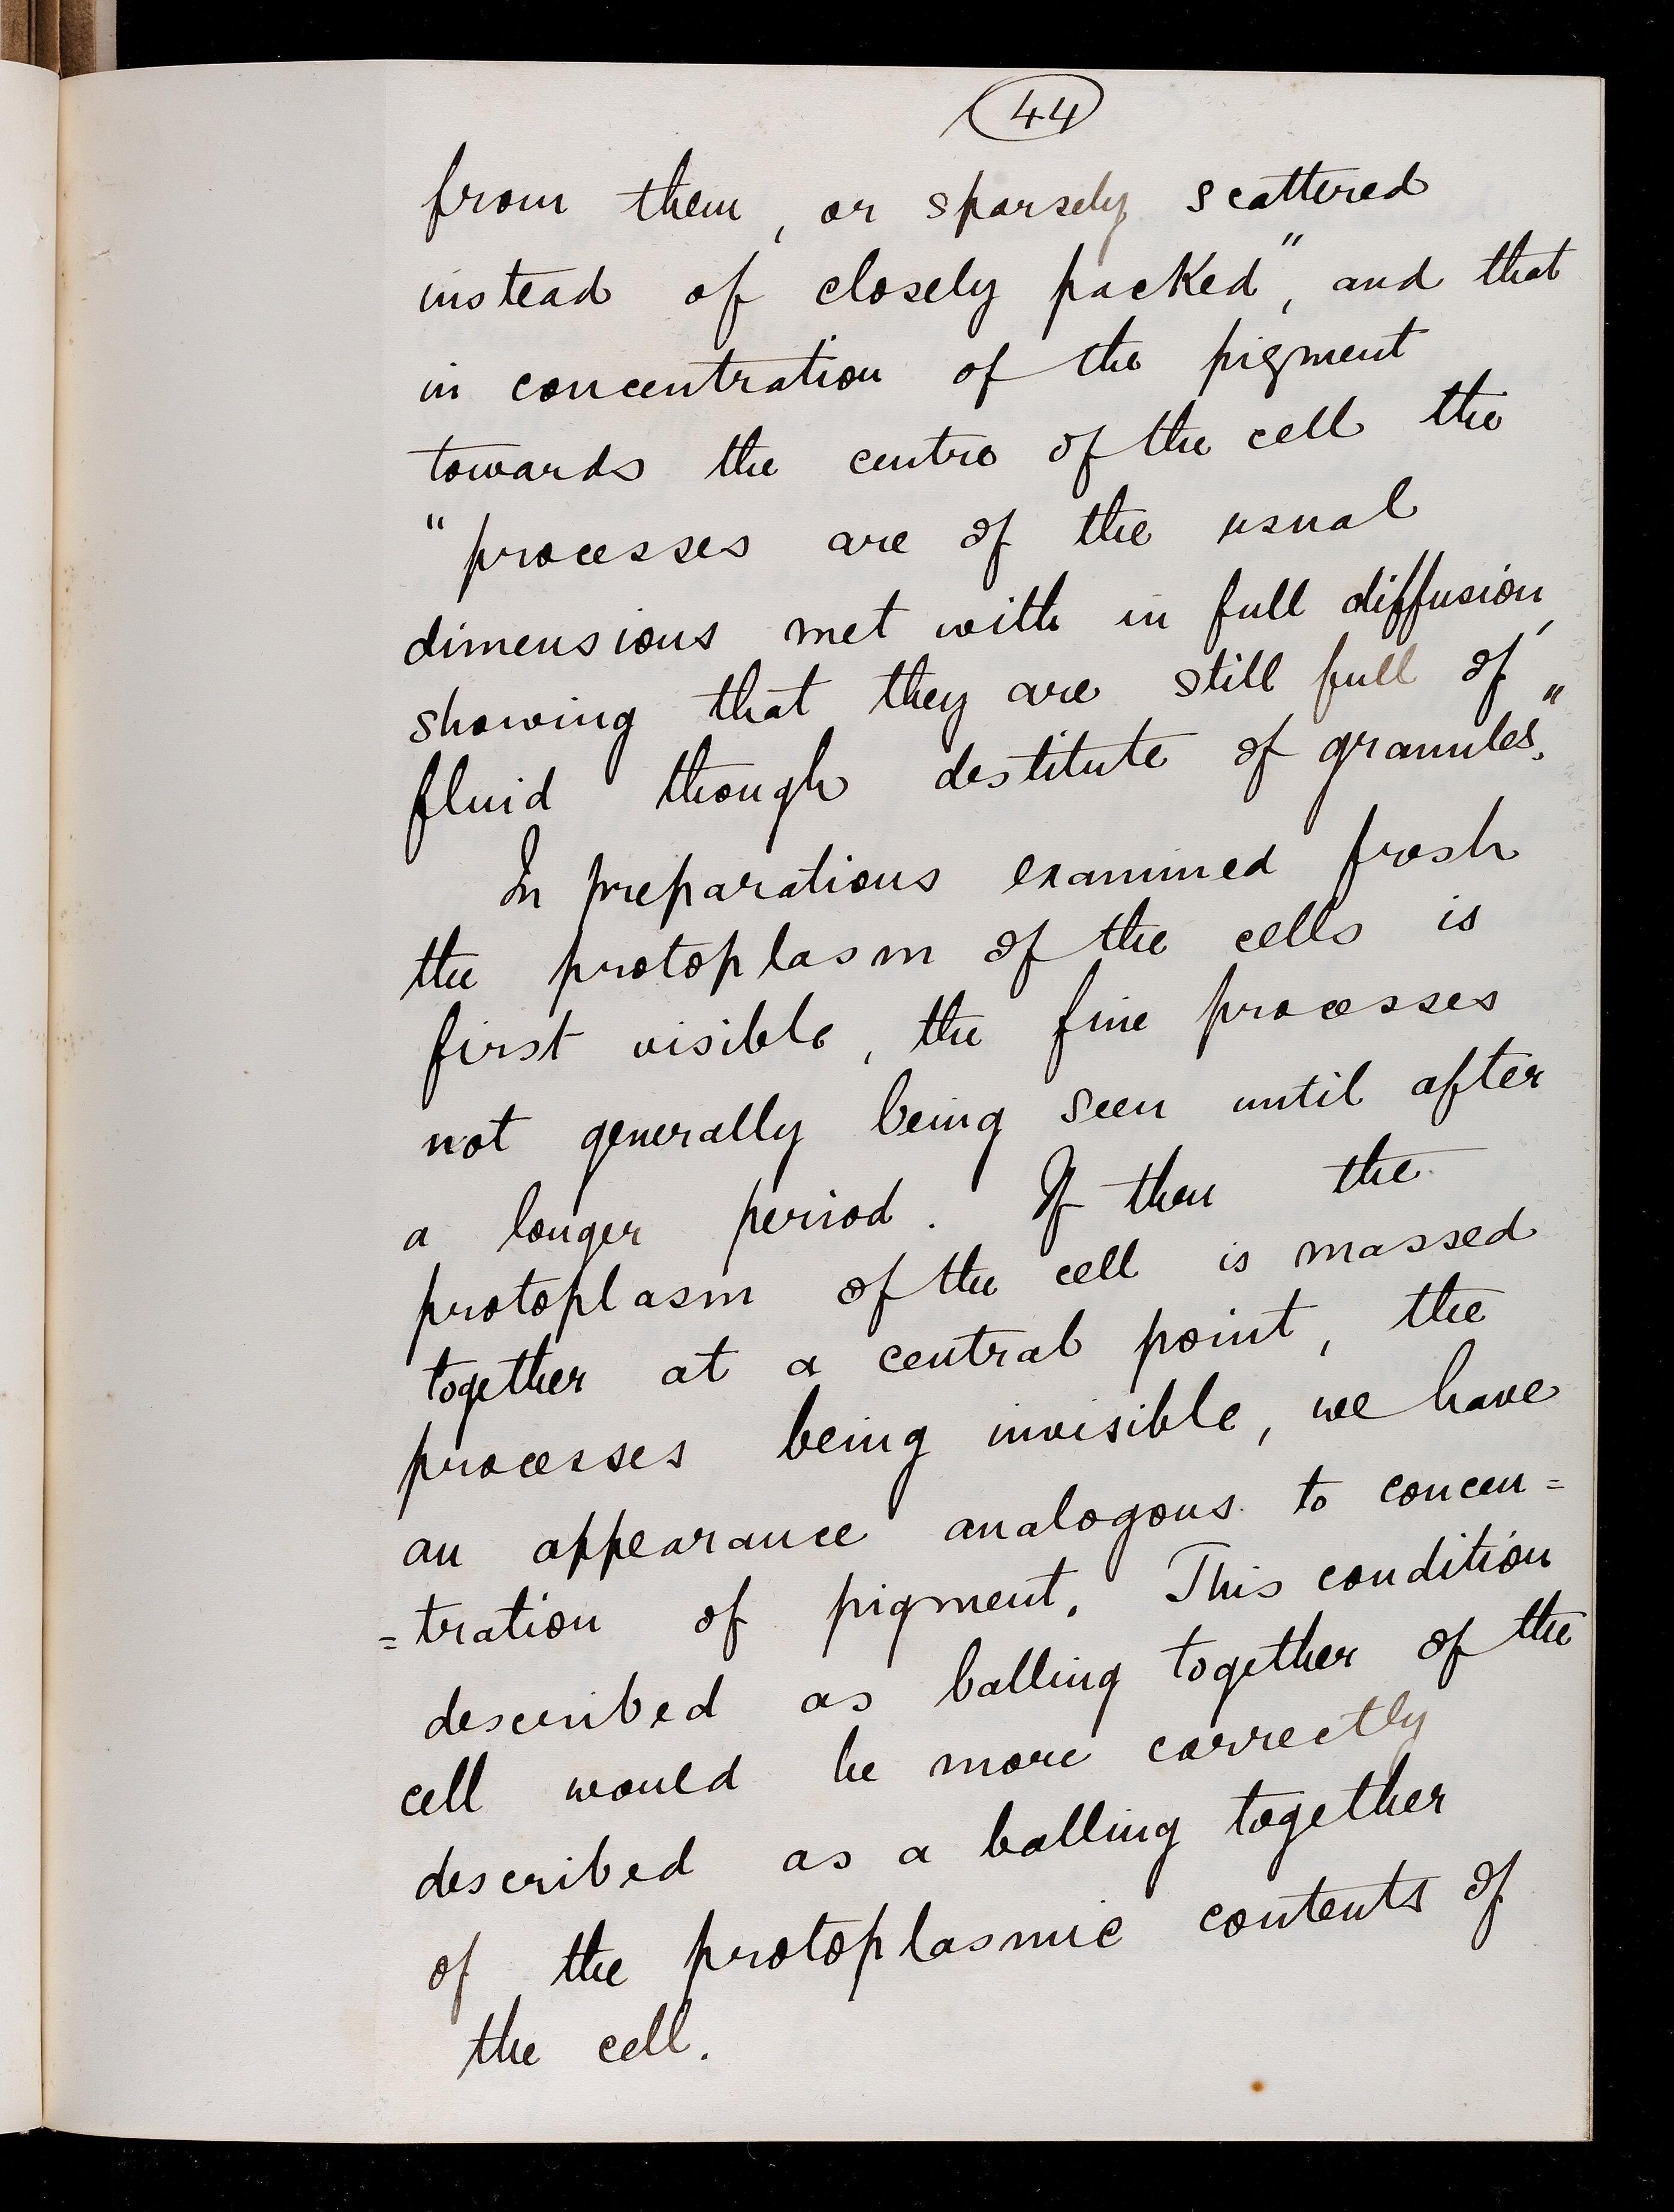 44
from them, or sparsely scattered
instead of closely packed", and that
in concentration of the pigment
towards the centre of the cell the
"processes are of the usual
dimensions met with in full diffusion,
showing that they are still full of
fluid though destitute of granules."
In preparations examined fresh
the protoplasm of the cells is
first visible, the fine processes
not generally being seen until after
a longer period. If then the
protoplasm of the cell is massed
together at a central point, the
processes being invisible, we have
an appearance analogous to concen=
=tration of pigment. This condition
described as balling together of the
cell would be more correctly
described as a balling together
of the protoplasmic contents of
the cell.